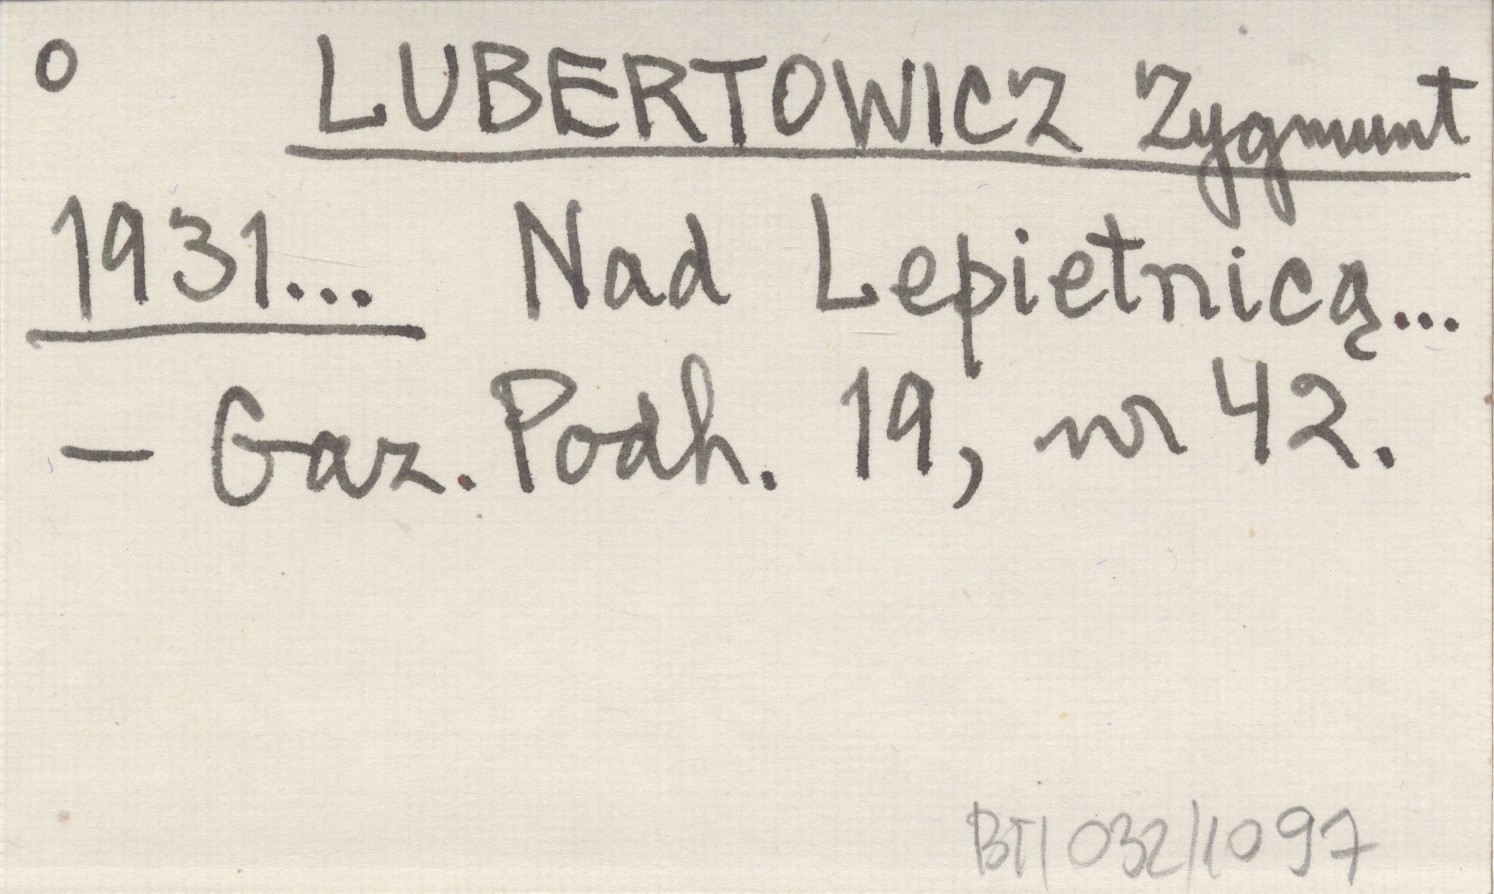 o LUBERTOWICZ Zygmunt
1931... Nad Lepietnicą...
— Gaz. Podh. 19, nr 42.
BT/032/1097